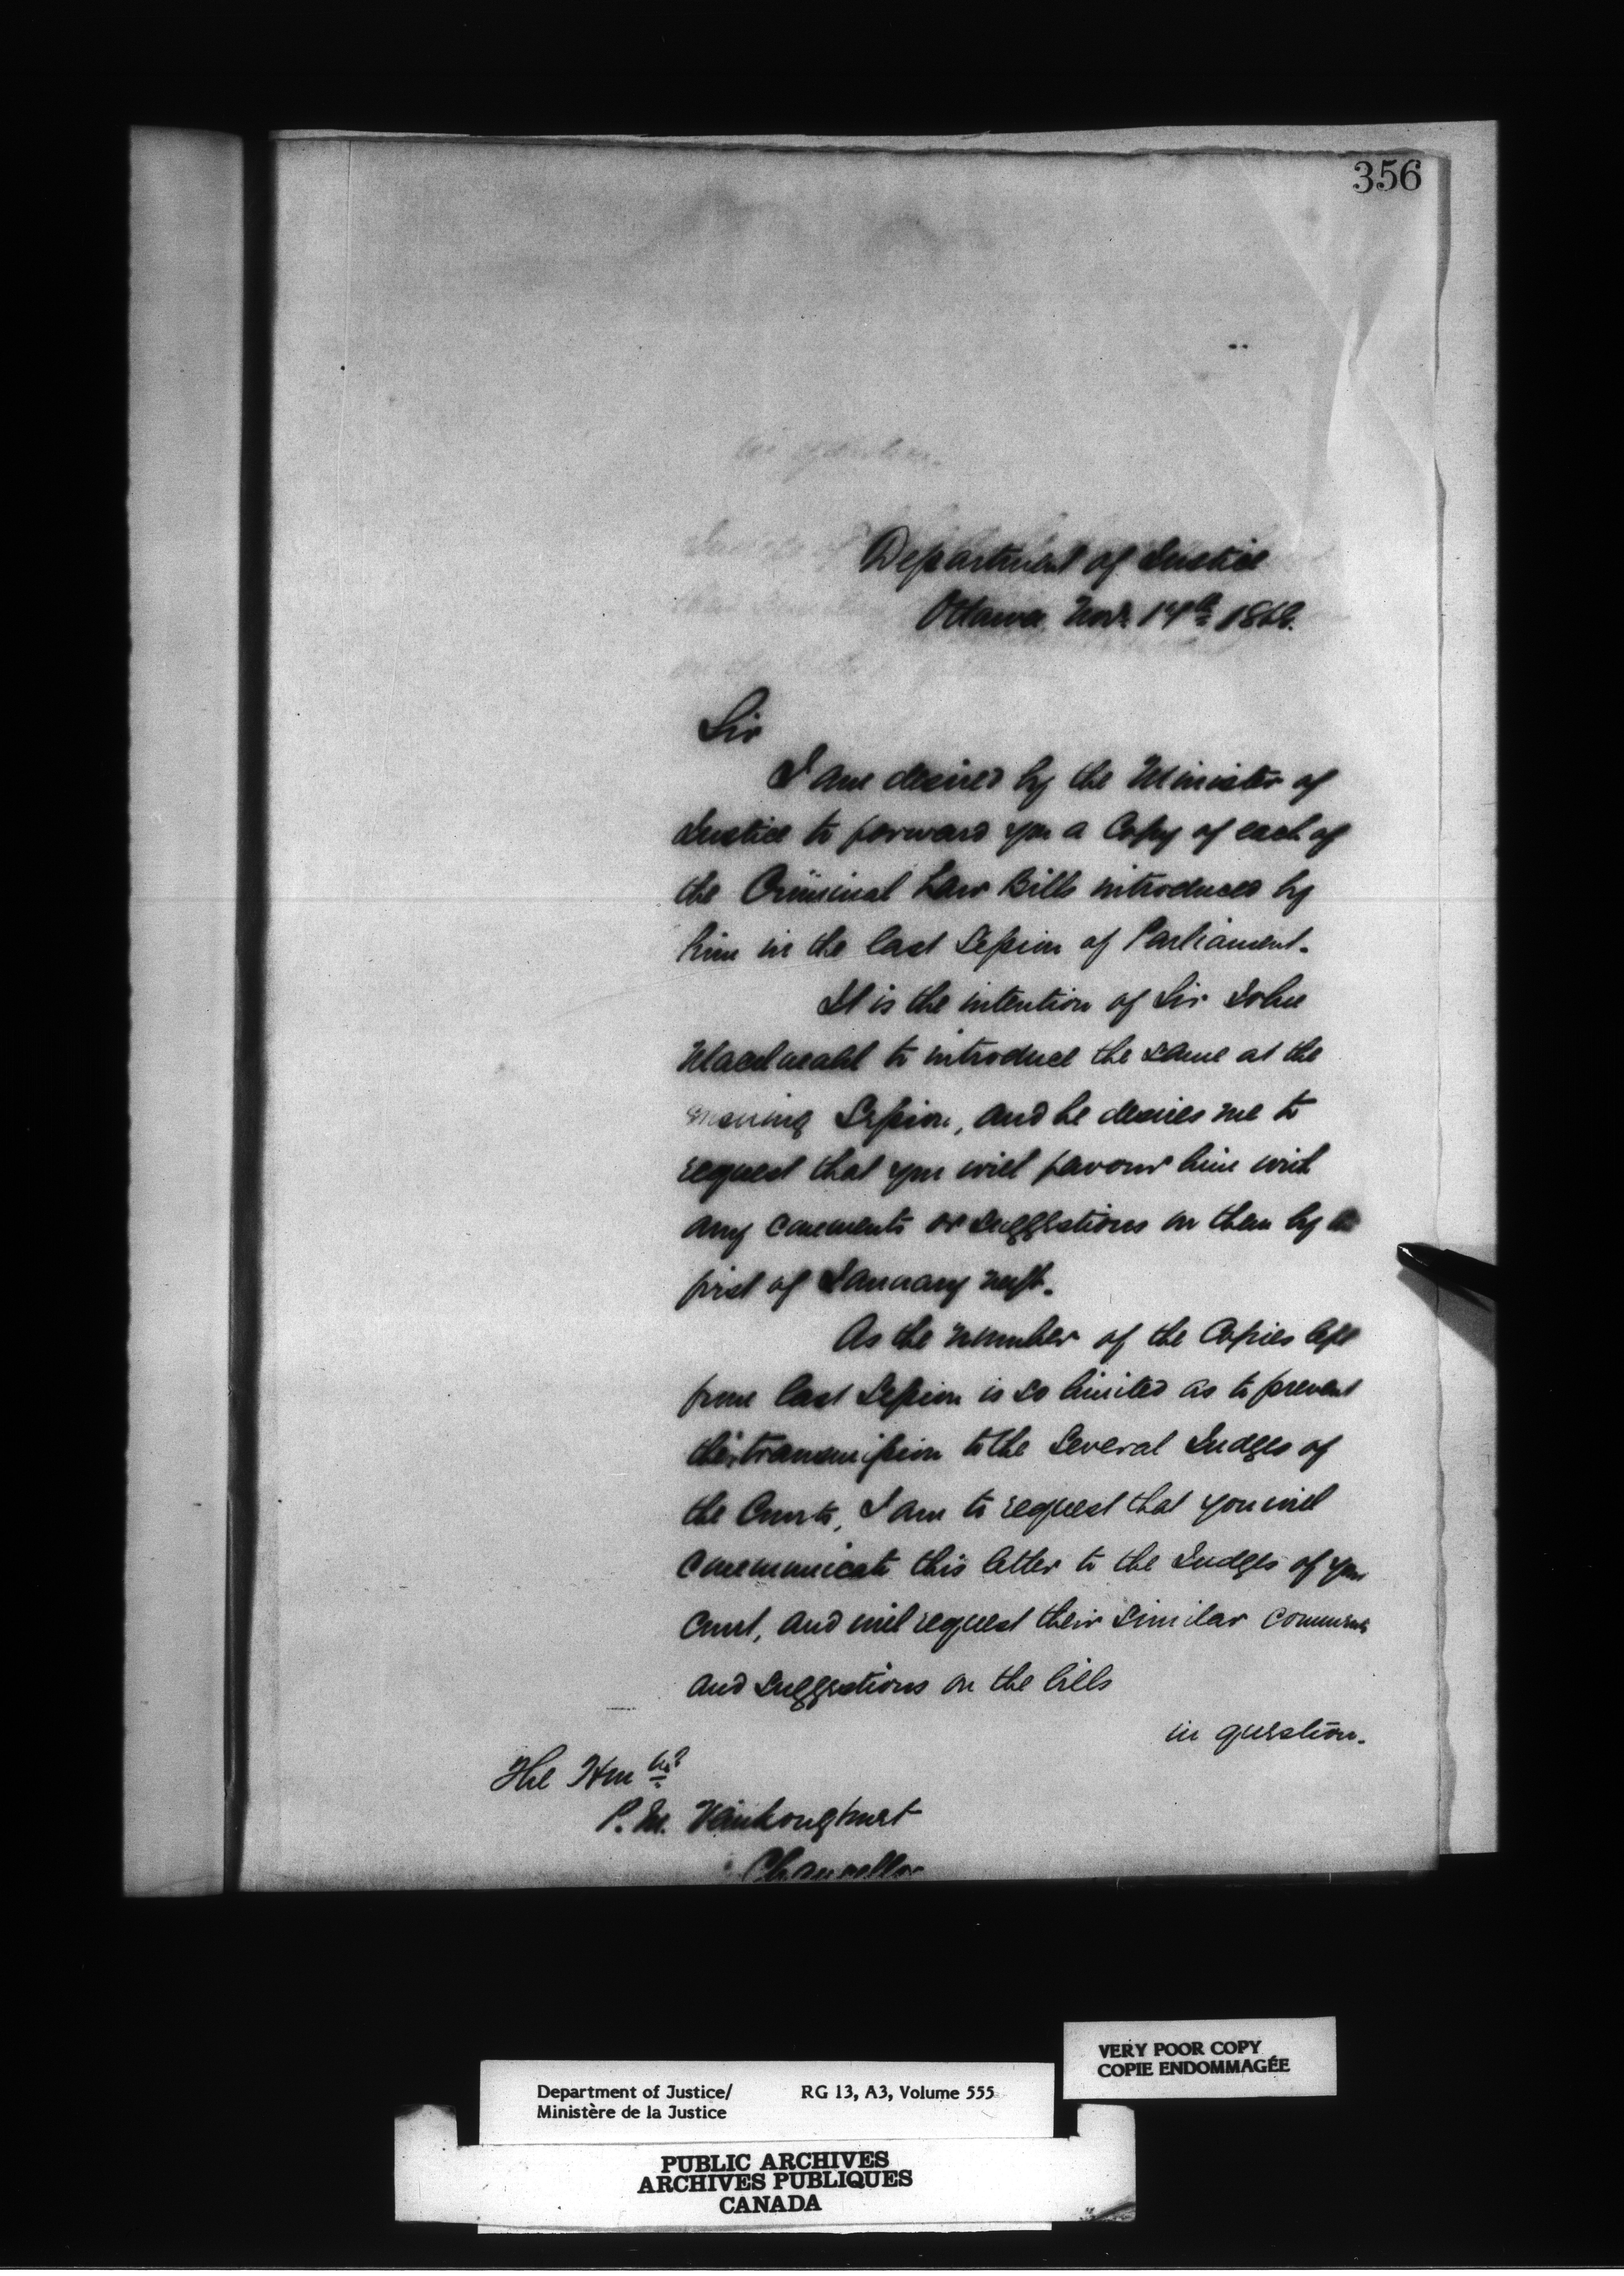 356
Department of Justice
Ottawa, Novr. 14th 1868.
Sir
I am desired by the Minister of
Justice to forward you a Copy of each of
the Criminal Law Bills introduced by
him in the last Session of Parliament.
It is the intention of Sir John
Macdonald to introduce the same at the
ensuing Session, and he desires me to
request that you will favour him with
any comments or suggestions on them by the
first of January next.
As the number of the Copies left
from last Session is so limited as to prevent
their transmission to the several Judges of
the Courts, I am to request that you will
communicate this letter to the Judges of your
Court, and will request their similar comments
and suggestions on the bills
in question.
The Honble
P. M. Vankoughnet
Chancellor
VERY POOR COPY
COPIE ENDOMMAGÉE
Department of Justice/ RG 13, A3, Volume 555
Ministère de la Justice
PUBLIC ARCHIVES
ARCHIVES PUBLIQUES
CANADA